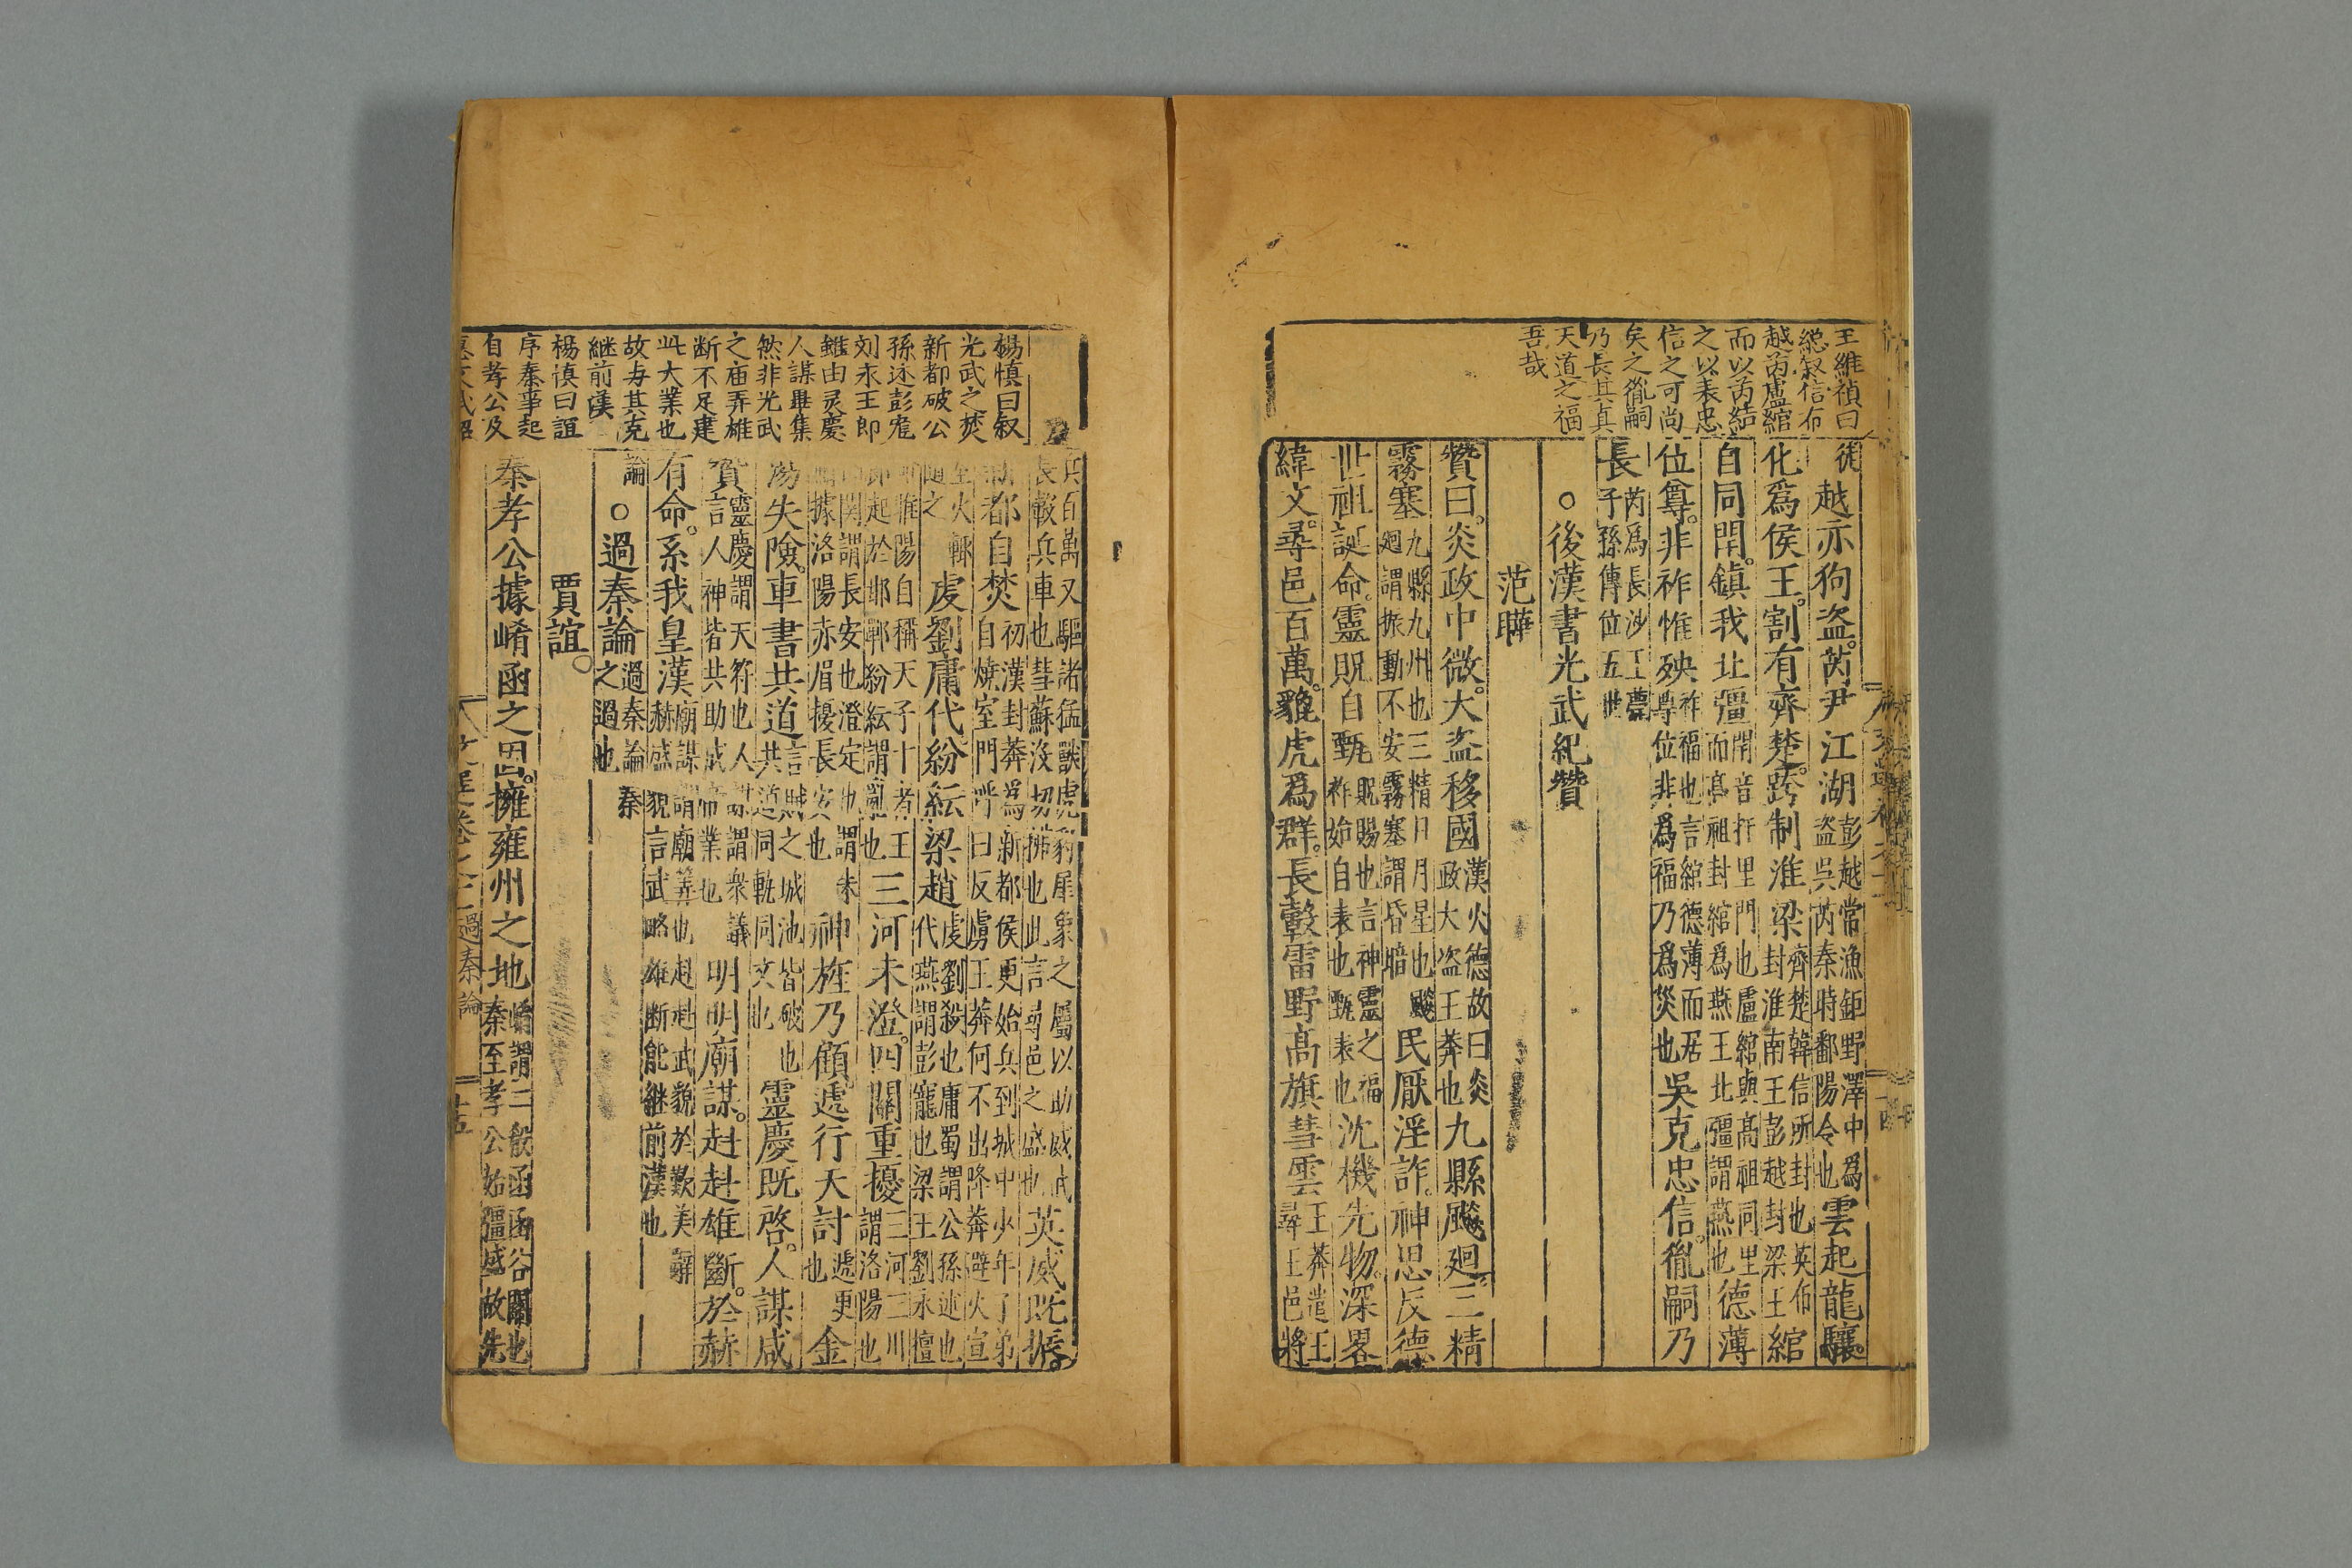 王維禎曰
緫叙信布
越芮盧綰
而以芮結
之以表忠
信之可尚
矣之胤嗣
乃長其真
天道之福
吾哉
徒越亦狗盗。芮尹江湖彭越常漁鉅野澤中爲盗吳芮秦時鄱陽令也雲起龍驤。
化爲侯王。割有齊楚。跨制淮梁齊楚韓信所封也英布封淮南王彭越封梁王綰
自同閈。鎮我北疆閈音扞里門也盧綰與高祖同里而高祖封綰爲燕王北疆謂燕也德薄
位尊。非祚惟殃祚福也言綰德薄而居尊位非爲福乃爲災也吳克忠信。胤嗣乃
長芮爲長沙王薨子孫傳位五世
○後漢書光武紀贊
范曄
贊曰。炎政中微。大盗移國漢火德故曰炎政大盗王莽也九縣飈廻。三精
霧塞九縣九州也三精日月星也飈廻謂振動不安霧塞謂昏暗民厭淫詐。神思反德
世祖誕命。靈貺自甄貺賜也言神靈之福祚始自表也甄表也沈機先物。深畧
緯文。尋邑百萬。貔虎爲群。長轂雷野高旗彗雲王莽遣王尋王邑將
楊慎曰叙
光武之焚
新都破公
孫述彭寵
刘永王郎
雖由灵慶
人謀畢集
然非光武
之庙弄雄
断不足建
此大業也
故与其克
継前漢
楊慎曰誼
序秦事起
自孝公及
兵百萬又驅諸猛獸虎豹犀象之屬以助威武長轂兵車也彗蘇没切拂也此言尋邑之盛也英威既振。
新都自焚初漢封莽爲新都侯更始兵到城中少年子弟自燒室門呼曰反虜王莽何不出降莽避火宣
室火輒隨之虔劉庸代紛紜梁趙虔劉殺也庸蜀謂公孫述也代燕謂彭寵也梁王劉永擅
睢陽自稱天子十者王郎起於邯鄲紛紜謂亂也三河未澄。四關重擾三河三川謂洛陽也
四関謂長安也澄定也謂朱鮪據洛陽赤眉擾長安也神旌乃顧遞行天討遞更也金
湯失險。車書共道言賊之城池皆破也共道同軌同文也靈慶既啓。人謀咸
賛靈慶謂天符也人謀謂衆議言人神皆共助成帝業也明明廟謀。赳赳雄斷。於赫
有命。系我皇漢廟謀謂廟筭也赳赳武貌於歎美辭赫盛貌言武略雄断能継前漢也
論○過秦論過秦論秦之過也
賈誼。
秦孝公據崤函之固。擁雍州之地崤謂二殽函函谷關也秦至孝公始彊盛故先
文選卷之 過秦論 十五